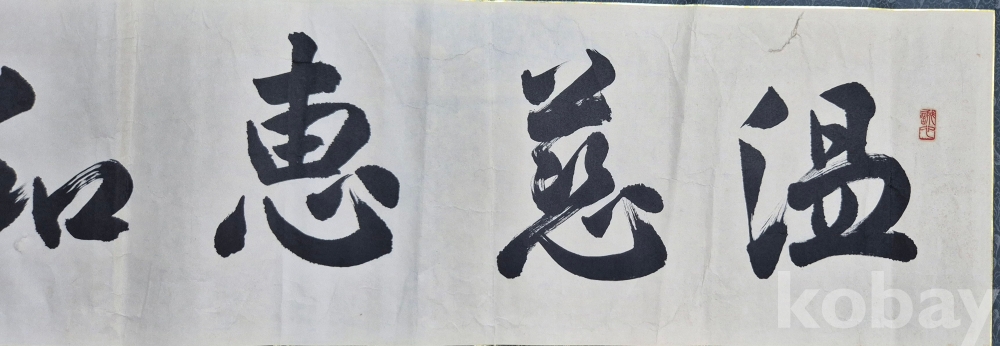 温慈恵和
kobay